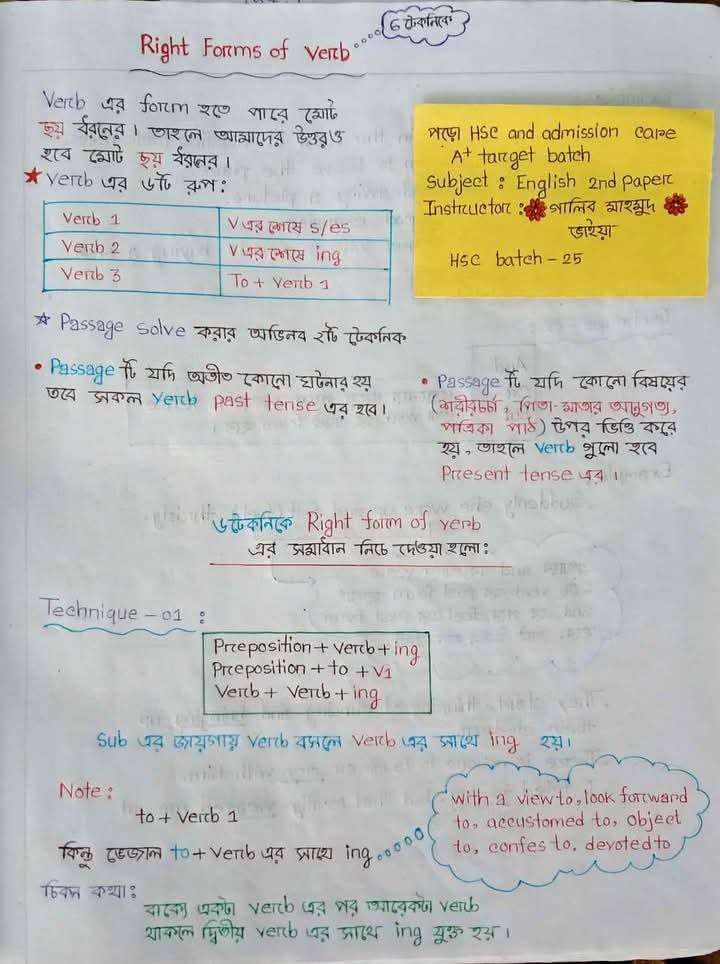 Right Forms of Verb
6 টেকনিকে
Verb এর form হতে পারে মোট
ছয় ধরনের। তাহলে আমাদের উত্তরও
হবে মোট ছয় ধরনের।
★ verb এর ৬টি রুপ:
Verb 1
V এর শেষে s/es
Verb 2
V এর শেষে ing
Verb 3
To + Verb 1
পড়ো HSC and admission care
A+ target batch
Subject : English 2nd paper
Instructor : গালিব মাহমুদ
ভাইয়া
HSC batch - 25
☆ Passage solve করার অভিনব ২টি টেকনিক
• Passage টি যদি অতীত কোনো ঘটনার হয়
তবে সকল verb past tense এর হবে।
• Passage টি যদি কোনো বিষয়ের
(শরীরচর্চা, পিতা-মাতার আনুগত্য,
পত্রিকা পাঠ) উপর ভিত্তি করে
হয়, তাহলে verb গুলো হবে
Present tense এর।
৬টেকনিকে Right form of verb
এর সমাধান নিচে দেওয়া হলো:
Technique - 01 :
Preposition + verb + ing
Preposition + to + V1
Verb + Verb + ing
Sub এর জায়গায় verb বসলে verb এর সাথে ing হয়।
Note :
to + Verb 1
কিন্তু ভেজাল to + Verb এর সাথে ing
with a view to, look forward
to, accustomed to, object
to, confes to, devoted to
চিকন কথা :
বাক্যে একটা verb এর পর আরেকটা verb
থাকলে দ্বিতীয় verb এর সাথে ing যুক্ত হয়।